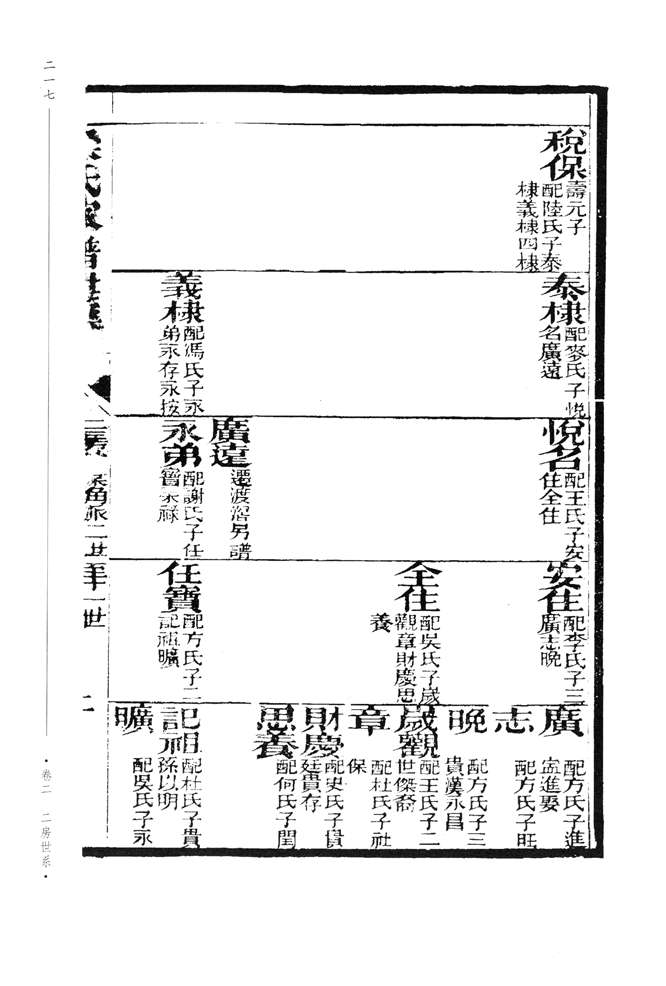 稅保
壽元子
配陸氏子泰
棣義棣四棣
泰棣
配麥氏子悅
名廣遠
義棣
配馮氏子永
弟永存永按
悅名
配王氏子安
住全住
廣遠
遷渡滘另譜
永弟
配謝氏子任
寶
安住
配李氏子三
廣志晚
全住
配吳氏子歲
觀章財慶思
養
任寶
配方氏子二
記祖曠
廣
配方氏子進
盂進娶
志
配方氏子旺
晚
配方氏子三
貴漢永昌
歲觀
配王氏子二
世傑裔
章
配杜氏子社
保
財慶
配史氏子貴
廷貴存
思養
配何氏子閏
記祖
配杜氏子貴
孫以明
曠
配吳氏子永
氏家譜世系
二
二一七
卷二 二房世系